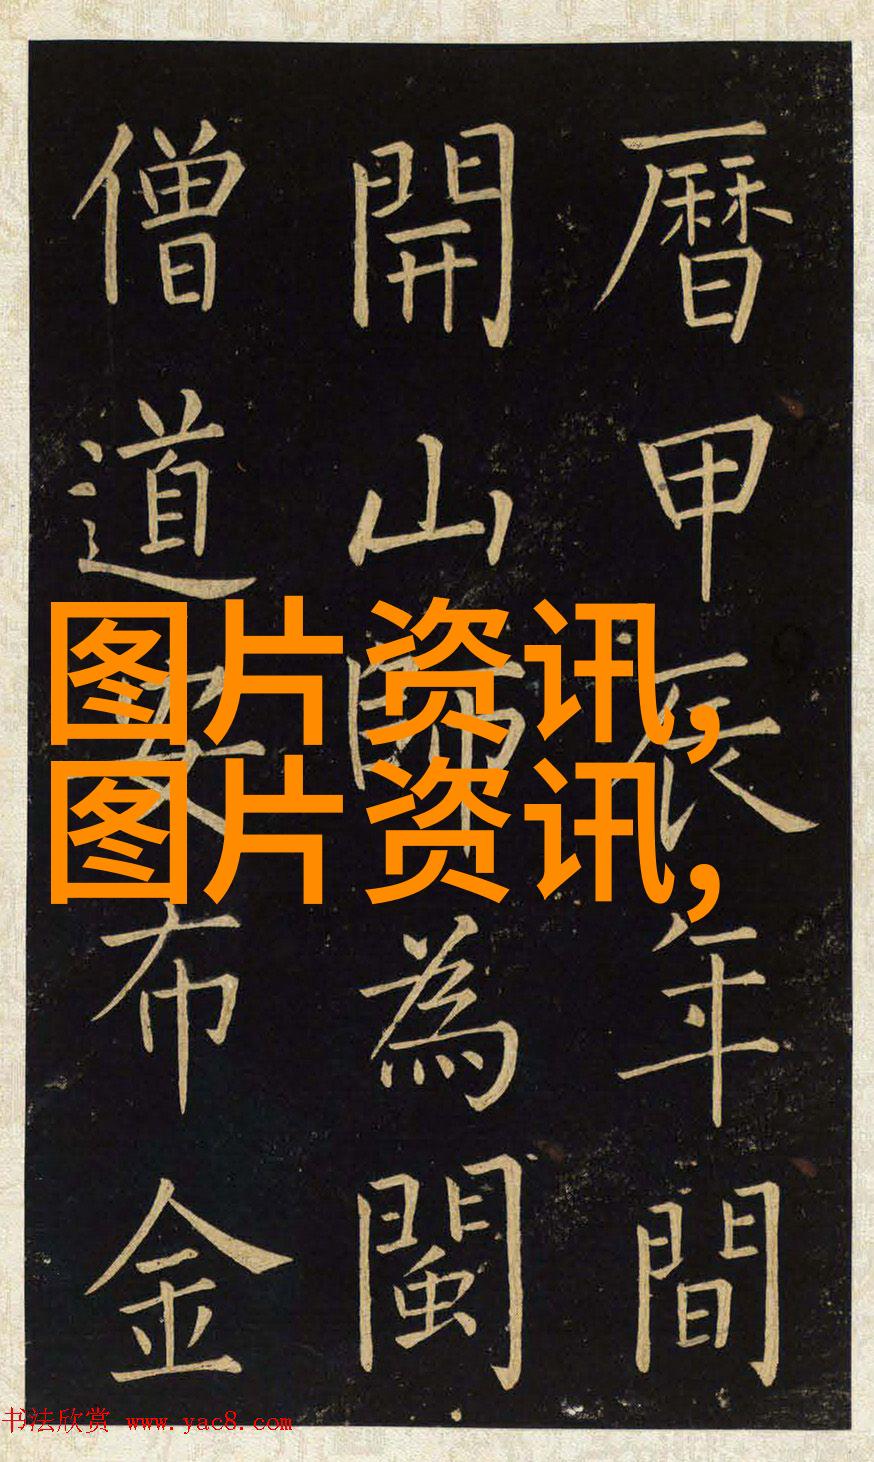 曆甲辰年間
開山師為閩
僧道布金
图片资讯,
图片资讯,
书法欣赏 www.yac8.com